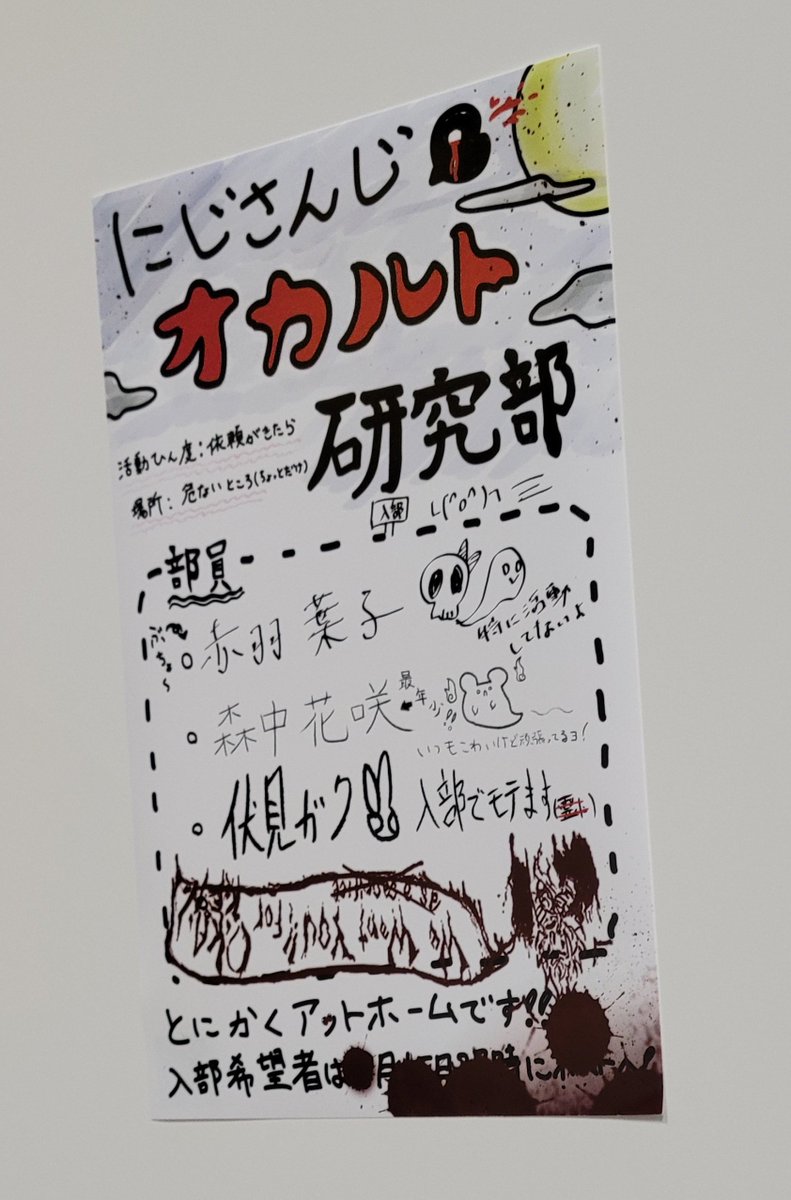 にじさんじ
オカルト
研究部
活動ひん度：依頼がきたら
場所：危ないところ(ちょっとだけ)
入部
部員
ぶちょ〜
○赤羽葉子
特に活動
してないよ
○森中花咲
最年少
いつもこわいけど頑張ってるヨ！
○伏見ガク
入部でモテます(霊に)
We want you!!
とにかくアットホームです!!
入部希望者は
月
時に